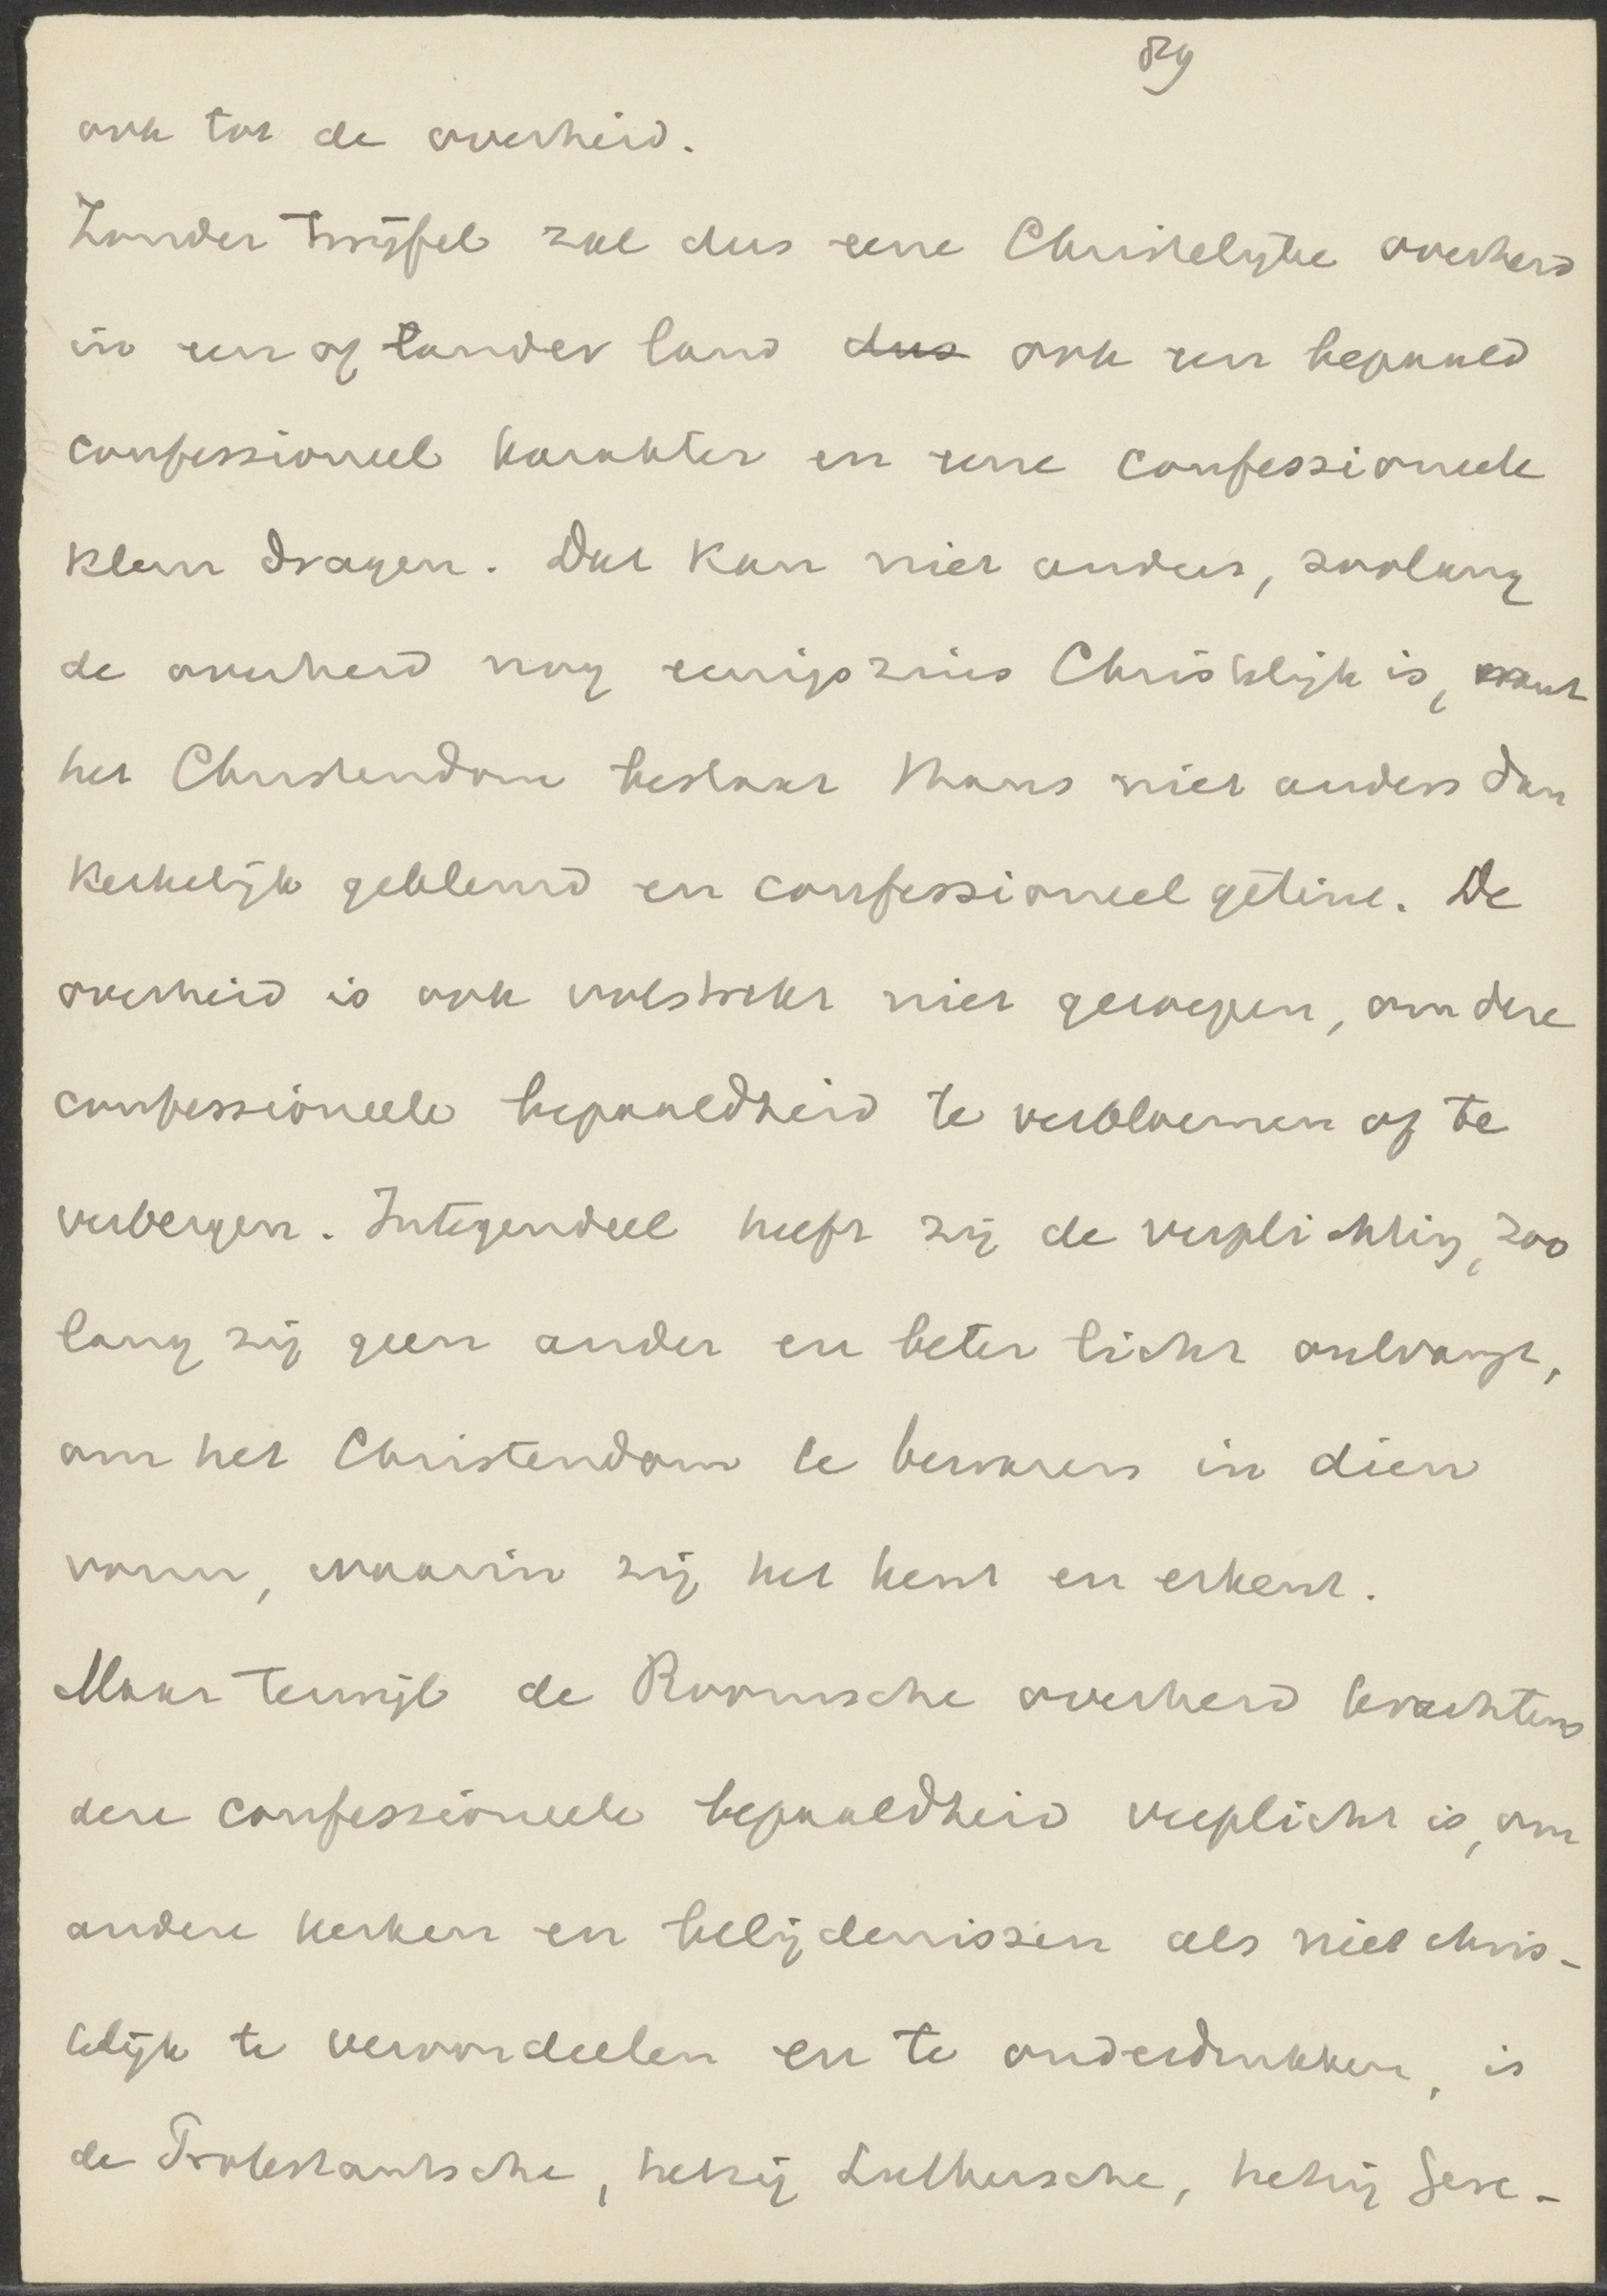 89
ook tot de overheid.
Zonder twijfel zal dus eene Christelijke overheid
in een of tander land ~~dus~~ ook een bepaald
confessioneel karakter en eene confessioneele
kleur dragen. Dat kan niet anders, zoolang
de overheid nog eenigszins Christelijk is, want
het Christendom bestaat thans niet anders dan
kerkelijk gekleurd en confessioneel getint. De
overheid is ook volstrekt niet geroepen, om deze
confessioneele bepaaldheid te verbloemen of te
verbergen. Integendeel heeft zij de verplichting, zoo
lang zij geen ander en beter licht ontvangt,
om het Christendom te bewaren in dien
vorm, waarin zij het kent en erkent.
Maar terwijl de Roomsche overheid krachtens
deze confessioneele bepaaldheid verplicht is, om
andere kerken en belijdenissen als niet chris-
telijk te veroordeelen en te onderdrukken, is
de Protestantsche, hetzij Luthersche, hetzij Gere-